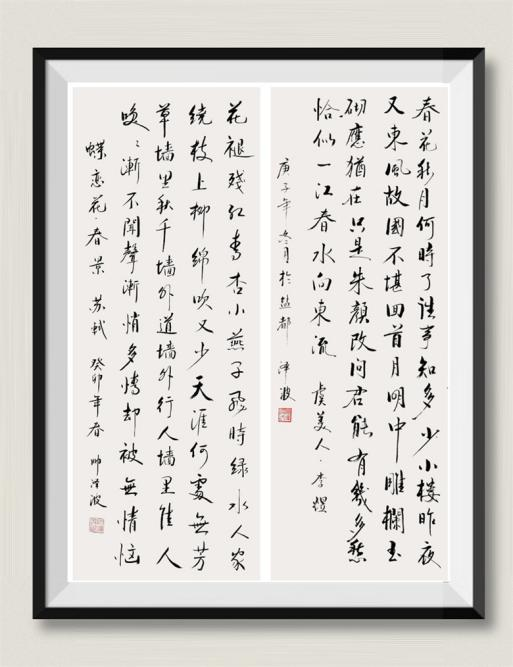 春花秋月何時了往事知多少小樓昨夜
又東風故國不堪回首月明中雕欄玉
砌應猶在只是朱顔改問君能有幾多愁
恰似一江春水向東流 虞美人·李煜
庚子年冬月於盐都 泽波
花褪殘红青杏小燕子飛時緑水人家
绕枝上柳綿吹又少天涯何處無芳
草墙里秋千墙外道墙外行人墙里佳人
咲、漸不聞聲漸悄多情却被無情恼
蝶恋花·春景 苏轼 癸卯年春 帅泽波